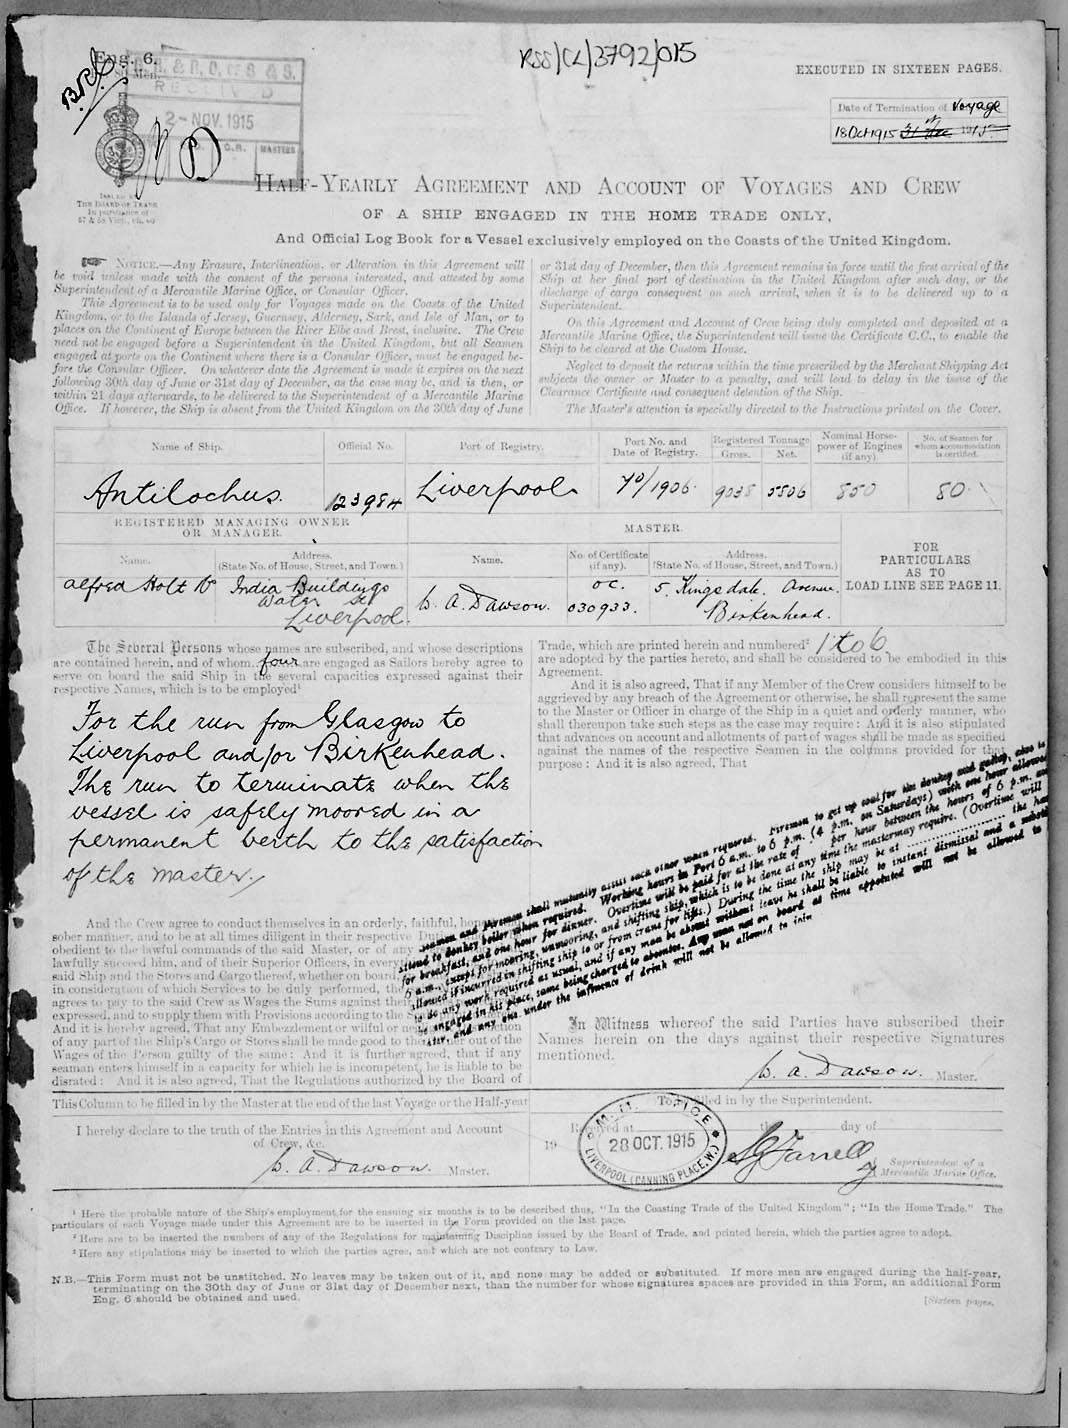 RSS/CL/3792/015
Eng. 6.
EXECUTED IN SIXTEEN PAGES.
RECEIVED
2 - NOV. 1915
MASTERS
Date of Termination of Voyage
18 Oct 1915 31st Dec 1915
HALF-YEARLY AGREEMENT AND ACCOUNT OF VOYAGES AND CREW
OF A SHIP ENGAGED IN THE HOME TRADE ONLY,
And Official Log Book for a Vessel exclusively employed on the Coasts of the United Kingdom.
ISSUED BY
THE BOARD OF TRADE
In pursuance of
57 & 58 Vict., ch. 60
NOTICE.—Any Erasure, Interlineation, or Alteration in this Agreement will
be void unless made with the consent of the persons interested, and attested by some
Superintendent of a Mercantile Marine Office, or Consular Officer.
This Agreement is to be used only for Voyages made on the Coasts of the United
Kingdom, or to the Islands of Jersey, Guernsey, Alderney, Sark, and Isle of Man, or to
places on the Continent of Europe between the River Elbe and Brest, inclusive. The Crew
need not be engaged before a Superintendent in the United Kingdom, but all Seamen
engaged at ports on the Continent where there is a Consular Officer, must be engaged be-
fore the Consular Officer. On whatever date the Agreement is made it expires on the next
following 30th day of June or 31st day of December, as the case may be, and is then, or
within 21 days afterwards, to be delivered to the Superintendent of a Mercantile Marine
Office. If however, the Ship is absent from the United Kingdom on the 30th day of June
or 31st day of December, then this Agreement remains in force until the first arrival of the
Ship at her final port of destination in the United Kingdom after such day, or the
discharge of cargo consequent on such arrival, when it is to be delivered up to a
Superintendent.
On this Agreement and Account of Crew being duly completed and deposited at a
Mercantile Marine Office, the Superintendent will issue the Certificate C.C., to enable the
Ship to be cleared at the Custom House.
Neglect to deposit the returns within the time prescribed by the Merchant Shipping Act
subjects the owner or Master to a penalty, and will lead to delay in the issue of the
Clearance Certificate and consequent detention of the Ship.
The Master's attention is specially directed to the Instructions printed on the Cover.
Name of Ship. Official No. Port of Registry. Port No. and Date of Registry. Registered Tonnage Gross. Net. Nominal Horse-power of Engines (if any). No. of Seamen for whom accommodation is certified.
Antilochus. 123984 Liverpool. 70/1906. 9038 5806 850 80.
REGISTERED MANAGING OWNER
OR MANAGER.
MASTER.
Name. Address. (State No. of House, Street, and Town.) Name. No. of Certificate (if any). Address. (State No. of House, Street, and Town.)
FOR
PARTICULARS
AS TO
LOAD LINE SEE PAGE 11.
Alfred Holt India Buildings
Water St
Liverpool.
W. A. Dawson. O.C.
030933.
5. Kingsdale. Avenue.
Birkenhead.
The Several Persons whose names are subscribed, and whose descriptions
are contained herein, and of whom four are engaged as Sailors hereby agree to
serve on board the said Ship in the several capacities expressed against their
respective Names, which is to be employed¹
For the run from Glasgow to
Liverpool and/or Birkenhead.
The run to terminate when the
vessel is safely moored in a
permanent berth to the satisfaction
of the master.
And the Crew agree to conduct themselves in an orderly, faithful,
sober manner, and to be at all times diligent in their respective
obedient to the lawful commands of the said Master, or of any
lawfully succeed him, and of their Superior Officers, in
said Ship and the Stores and Cargo thereof, whether on board,
in consideration of which Services to be duly performed, the
agrees to pay to the said Crew as Wages the Sums against their
expressed, and to supply them with Provisions according to the
And it is hereby agreed, That any Embezzlement or wilful or
of any part of the Ship's Cargo or Stores shall be made good to the Owner out of the
Wages of the Person guilty of the same: And it is further agreed, that if any
seaman enters himself in a capacity for which he is incompetent, he is liable to be
disrated: And it is also agreed, That the Regulations authorized by the Board of
Trade, which are printed herein and numbered² 1 to 6
are adopted by the parties hereto, and shall be considered to be embodied in this
Agreement.
And it is also agreed, That if any Member of the Crew considers himself to be
aggrieved by any breach of the Agreement or otherwise, he shall represent the same
to the Master or Officer in charge of the Ship in a quiet and orderly manner, who
shall thereupon take such steps as the case may require: And it is also stipulated
that advances on account and allotments of part of wages shall be made as specified
against the names of the respective Seamen in the columns provided for that
purpose: And it is also agreed, That
Seamen and Firemen shall mutually assist each other when required. Firemen to get up coal for the donkey and galley, also to
attend to donkey boiler when required. Working hours in Port 6 a.m. to 6 p.m. (4 p.m. on Saturdays) with one hour allowed
for breakfast, and one hour for dinner. Overtime will be paid for at the rate of per hour between the hours of 6 p.m. and
6 a.m., except for mooring, unmooring, and shifting ship, which is to be done at any time the master may require. (Overtime will
allowed if incurred in shifting ship to or from crane for lifts.) During the time the ship may be at the
to do any work required as usual, and if any man be absent without leave he shall be liable to instant dismissal and a
engaged in his place, same being charged to absentee. Any man not on board at time appointed will not be allowed to
and any one under the influence of drink will not be allowed to
In Witness whereof the said Parties have subscribed their
Names herein on the days against their respective Signatures
mentioned.
W. A. Dawson. Master.
This Column to be filled in by the Master at the end of the last Voyage or the Half-year
I hereby declare to the truth of the Entries in this Agreement and Account
of Crew, &c.
W. A. Dawson. Master.
To be filled in by the Superintendent.
Received at the day of
19
M. M. OFFICE
28 OCT. 1915
LIVERPOOL (CANNING PLACE, W.)
Farrell
Superintendent of a
Mercantile Marine Office.
¹ Here the probable nature of the Ship's employment for the ensuing six months is to be described thus, "In the Coasting Trade of the United Kingdom"; "In the Home Trade." The
particulars of each Voyage made under this Agreement are to be inserted in the Form provided on the last page.
² Here are to be inserted the numbers of any of the Regulations for maintaining Discipline issued by the Board of Trade, and printed herein, which the parties agree to adopt.
³ Here any stipulations may be inserted to which the parties agree, and which are not contrary to Law.
N.B.—This Form must not be unstitched. No leaves may be taken out of it, and none may be added or substituted. If more men are engaged during the half-year,
terminating on the 30th day of June or 31st day of December next, than the number for whose signatures spaces are provided in this Form, an additional Form
Eng. 6 should be obtained and used.
[Sixteen pages.